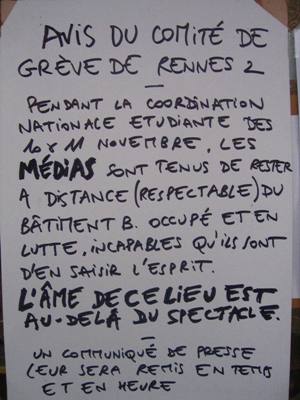 AVIS DU COMITÉ DE
GRÈVE DE RENNES 2
PENDANT LA COORDINATION
NATIONALE ETUDIANTE DES
10 & 11 NOVEMBRE, LES
MÉDIAS SONT TENUS DE RESTER
A DISTANCE (RESPECTABLE) DU
BÂTIMENT B. OCCUPÉ ET EN
LUTTE, INCAPABLES QU'ILS SONT
D'EN SAISIR L'ESPRIT.
L'ÂME DE CE LIEU EST
AU-DELÀ DU SPECTACLE.
UN COMMUNIQUÉ DE PRESSE
LEUR SERA REMIS EN TEMPS
ET EN HEURE